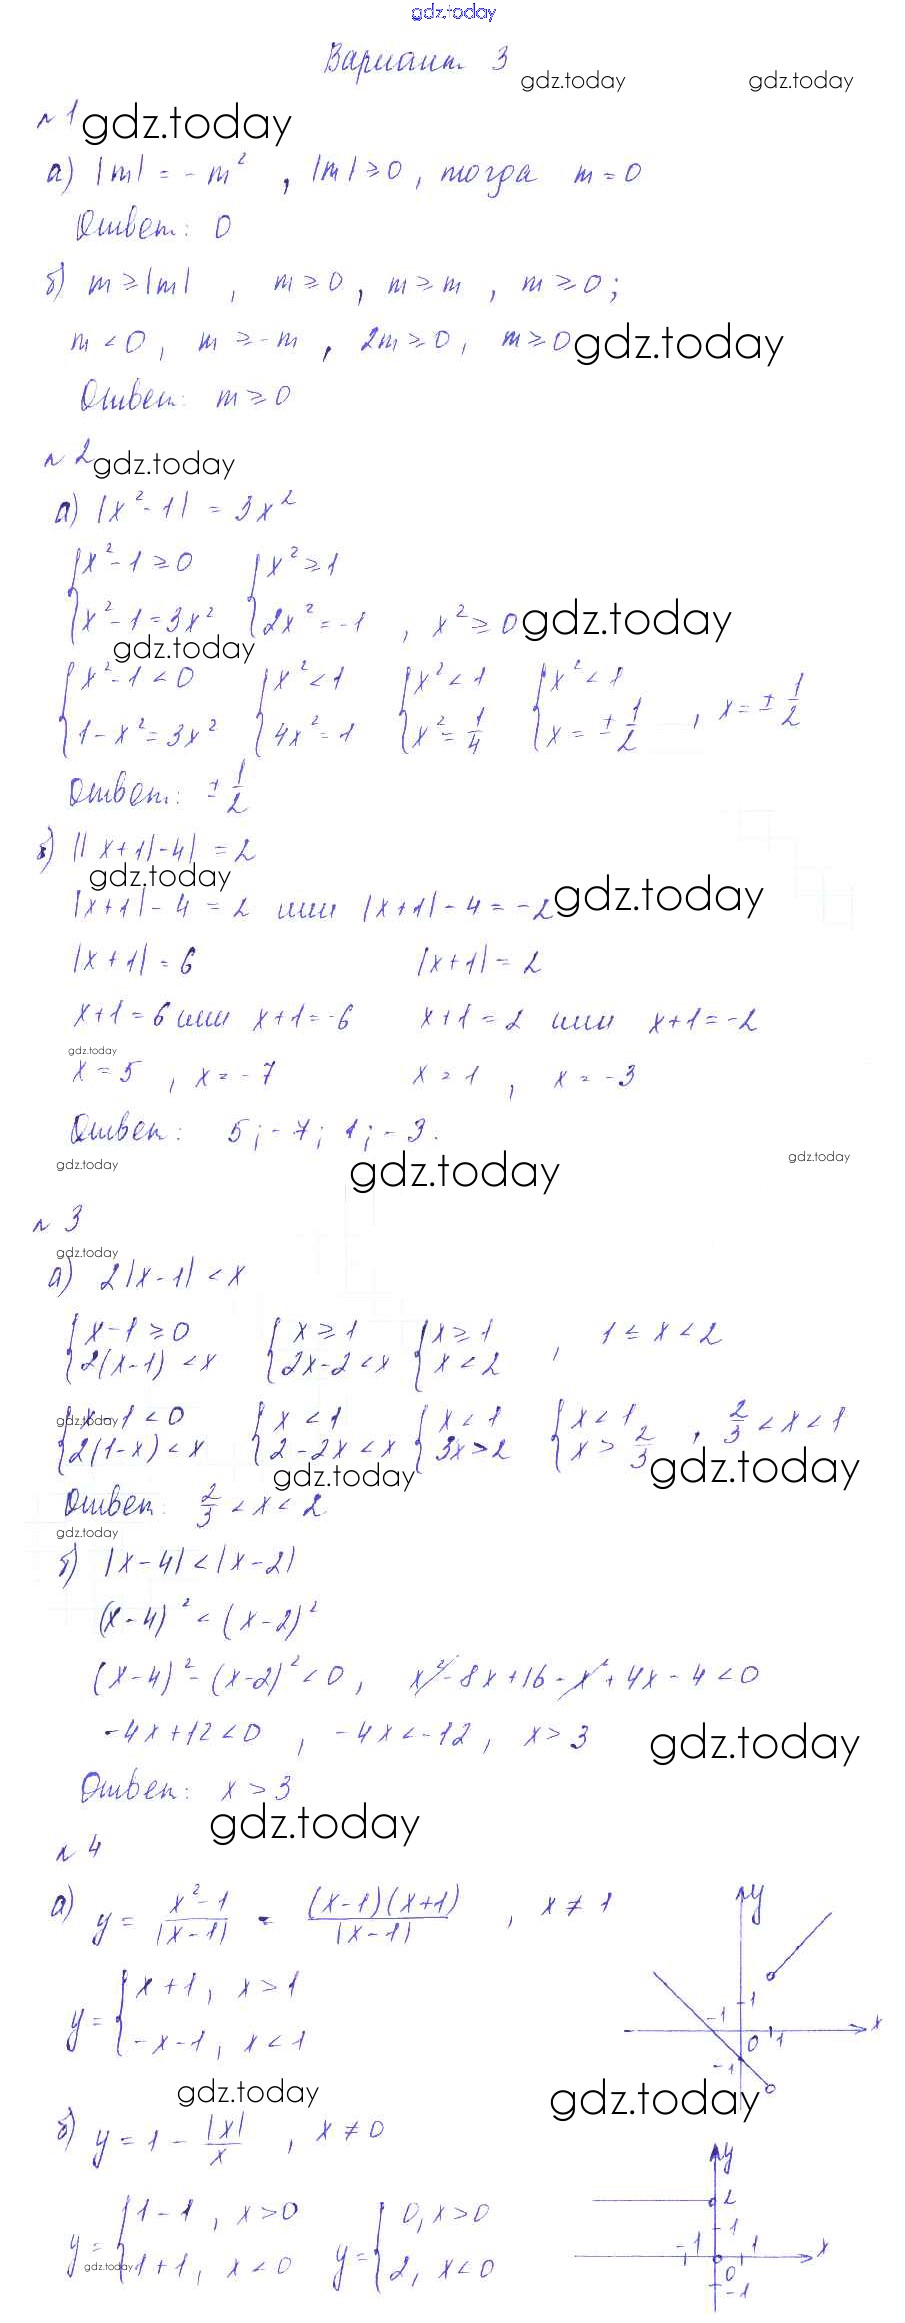 gdz.today
Вариант 3
gdz.today gdz.today
№1 gdz.today
а) |m| = -m² , |m| ≥ 0 , тогда m = 0
Ответ: 0
б) m ≥ |m| , m ≥ 0 , m ≥ m , m ≥ 0 ;
m < 0 , m ≥ -m , 2m ≥ 0 , m ≥ 0 gdz.today
Ответ: m ≥ 0
№2 gdz.today
а) |x² - 1| = 3x²
{x² - 1 ≥ 0 {x² ≥ 1
{x² - 1 = 3x² {2x² = -1 , x² ≥ 0 gdz.today
gdz.today
{x² - 1 < 0 {x² < 1 {x² < 1 {x² < 1
{1 - x² = 3x² {4x² = 1 {x² = 1/4 {x = ± 1/2 , x = ± 1/2
Ответ: ± 1/2
б) ||x + 1| - 4| = 2
gdz.today gdz.today
|x+1| - 4 = 2 или |x+1| - 4 = -2
|x + 1| = 6 |x+1| = 2
x+1 = 6 или x+1 = -6 x+1 = 2 или x+1 = -2
gdz.today
x = 5 , x = -7 x = 1 , x = -3
Ответ: 5; -7; 1; -3.
gdz.today gdz.today gdz.today
№ 3
gdz.today
а) 2|x - 1| < x
{x - 1 ≥ 0 {x ≥ 1 {x ≥ 1
{2(x-1) < x {2x - 2 < x {x < 2 , 1 ≤ x < 2
gdz.today
{x - 1 < 0 {x < 1 {x < 1 {x < 1
{2(1-x) < x {2 - 2x < x {3x > 2 {x > 2/3 , 2/3 < x < 1
gdz.today gdz.today
Ответ: 2/3 < x < 2.
gdz.today
б) |x - 4| < |x - 2|
(x - 4)² < (x - 2)²
(x-4)² - (x-2)² < 0 , x² - 8x + 16 - x² + 4x - 4 < 0
-4x + 12 < 0 , -4x < -12 , x > 3 gdz.today
Ответ: x > 3
gdz.today
№ 4
а) y = x² - 1 / |x - 1| = (x-1)(x+1) / |x-1| , x ≠ 1
y = {x + 1 , x > 1
{-x - 1 , x < 1
y
1
-1
0 1
x
-1
gdz.today gdz.today
б) y = 1 - |x|/x , x ≠ 0
y = {1 - 1 , x > 0 y = {0, x > 0
{1 + 1 , x < 0 {2, x < 0
gdz.today
y
2
1
-1 1 x
0
-1